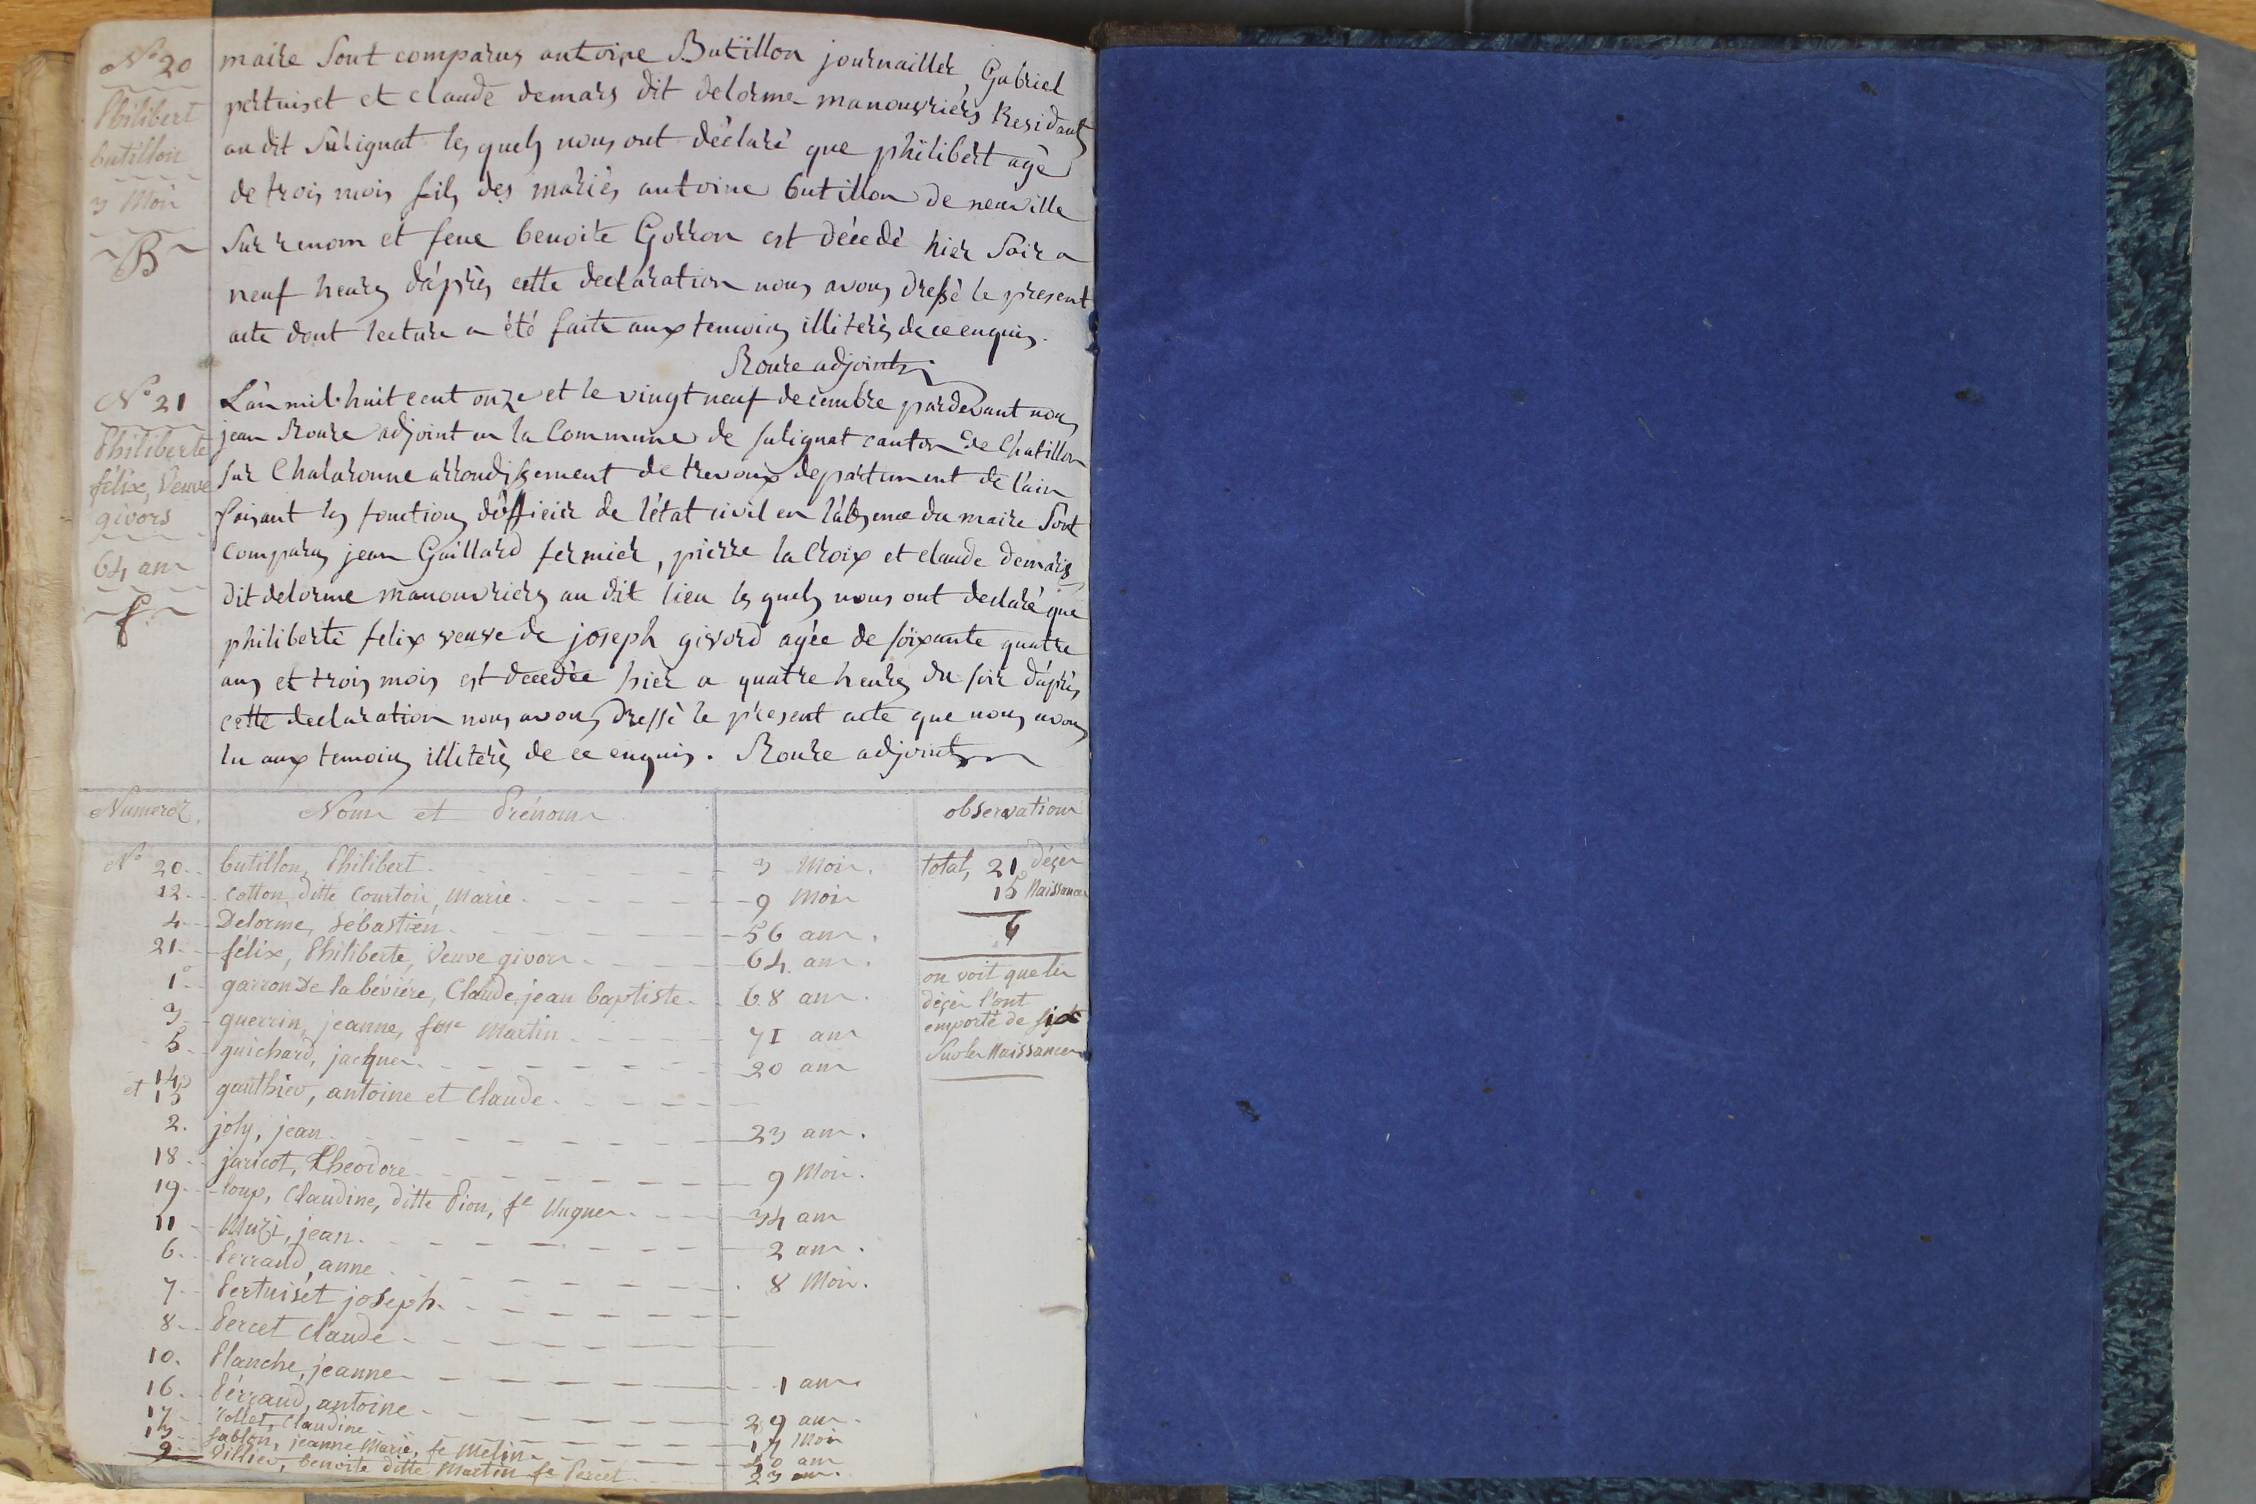 N° 20
Philibert
butillon
3 Mois
B
maire Sont comparus antoine Butillon journaillier, Gabriel
pertuiset et claude demars dit delorme manouvriers Residants
au dit Sulignat les quels nous ont déclaré que philibert agé
de trois mois fils des mariés antoine butillon de neuville
Sur renom et feue benoite Gorron est décedé hier Soir a
neuf heures d'après cette declaration nous avons dressé le present
acte dont lecture a été faite aux temoins illiterés de ce enquis.
Roure adjoint
N° 21
Philiberte
félix, Veuve
givors
64 ans
f
L'an mil huit cent onze et le vingt neuf decembre pardevant nous
jean Roure adjoint en la Commune de sulignat canton de Chatillon
sur Chalaronne arrondissement de trevoux departement de l'ain
faisant les fonctions d'officier de l'état civil en l'absence du maire Sont
comparus jean Gaillard fermier, pierre la Croix et claude demars
dit delorme manouvriers au dit lieu les quels nous ont declaré que
philiberte felix veuve de joseph givord agée de soixante quatre
ans et trois mois est decedée hier a quatre heures du soir d'après
cette declaration nous avons dressé le present acte que nous avons
lu aux temoins illiterés de ce enquis. Roure adjoint
Numeros. Noms et Prénoms observations
N° 20 butillon, Philibert 3 Mois.
12 Cotton, ditte Courtois, Marie 9 Mois
4 Delorme, Sebastien 56 ans.
21 félix, Philiberte, Veuve givors 64 ans.
1° garron De la bévière, Claude, jean baptiste 68 ans.
3 guerrin, jeanne, fe Martin 71 ans
5 guichard, jacques 20 ans
14
et 15 gauthier, antoine et Claude
2. joly, jean 23 ans.
18 jaricot, Theodore 9 Mois.
19 loup, Claudine, ditte Pion, fe Hugues 34 ans
11 Muzi, jean 2 ans.
6 Perraud, anne 8 Mois.
7 Pertuiset joseph
8 Percet Claude
10. Planche, jeanne 1 ans
16 Perraud, antoine 29 ans.
17 Claudine 17 Mois
13 Sablon, jeanne Marie, fe Melin ans
9 Villier, benoite ditte Martin fe Percet 23 ans.
total, 21 décès
15 Naissances
6
on voit que les
décès l'ont
emporté de six
Sur les Naissances